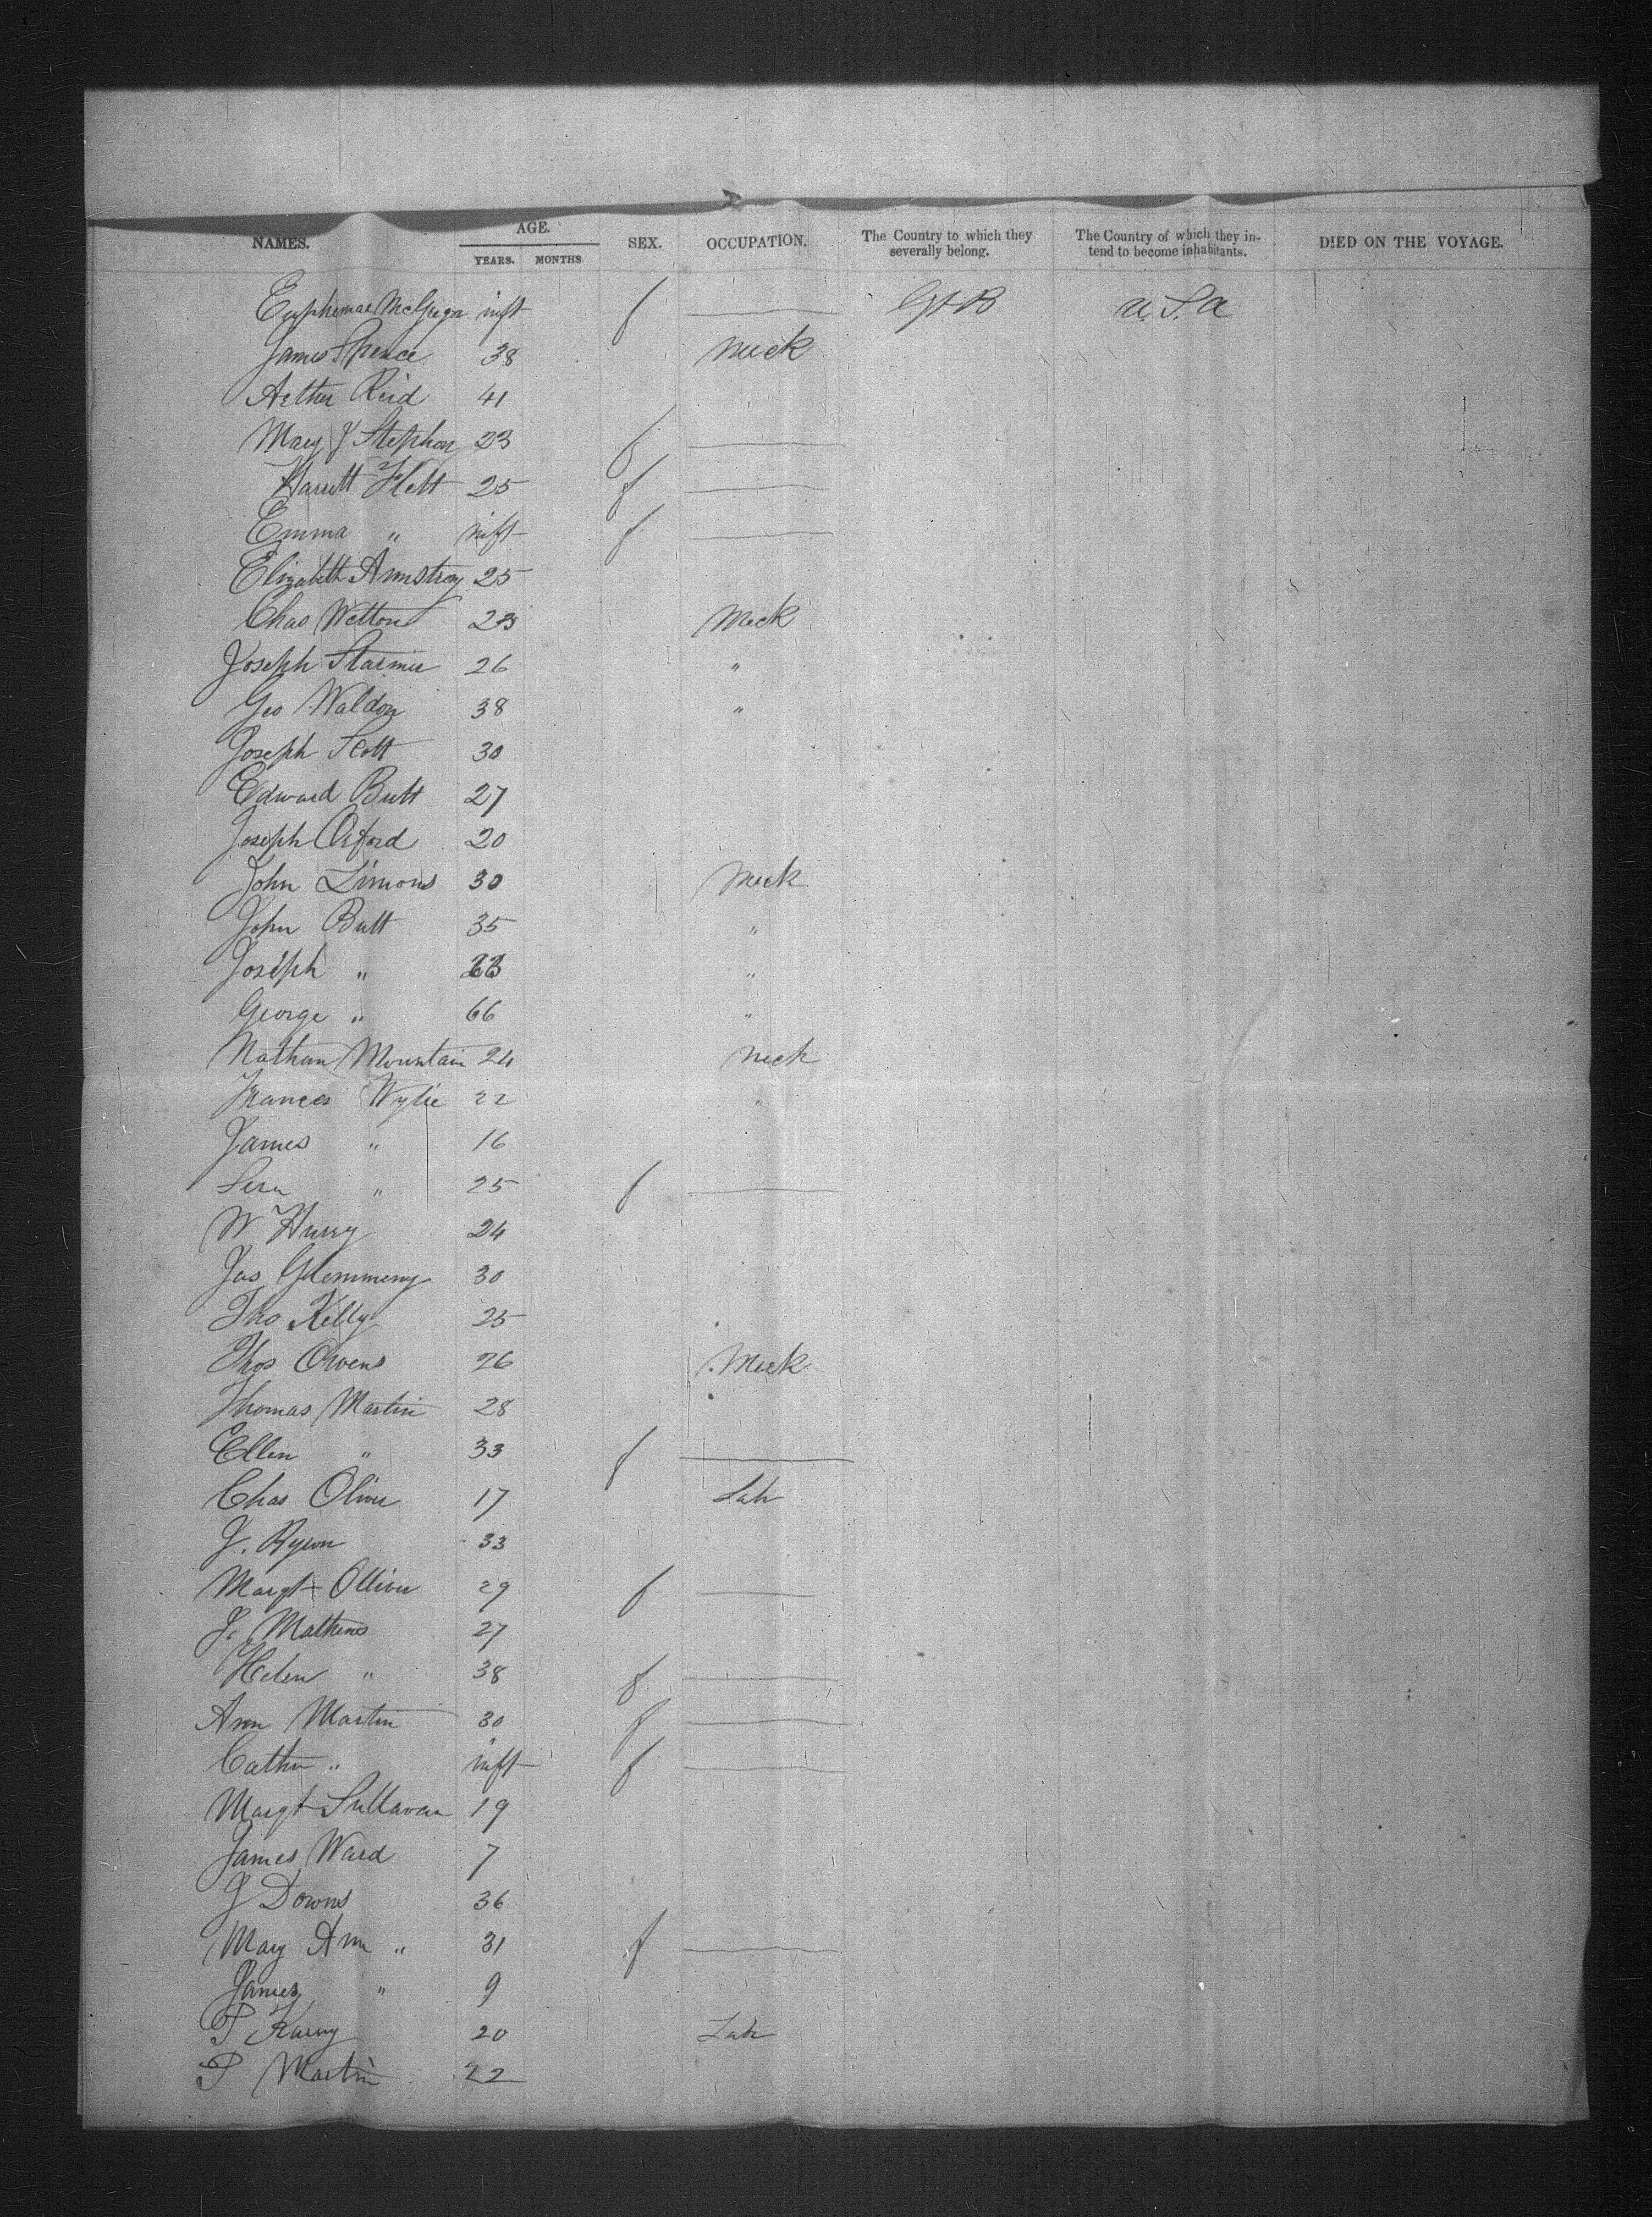 NAMES. AGE. YEARS. MONTHS SEX. OCCUPATION. The Country to which they severally belong. The Country of which they intend to become inhabitants. DIED ON THE VOYAGE.
Euphemae McGregor inft f Gt B U.S.A
James Spence 38 Meck
Arthur Reid 41
Mary J Stephen 23 f
Harett Flett 25 f
Emma " inft f
Elizabeth Armstrong 25
Chas Wetton 23 Meck
Joseph Starmer 26 "
Geo Waldon 38 "
Joseph Scott 30
Edward Butt 27
Joseph Orford 20
John Simons 30 Meck
John Butt 35 "
Joseph " "
George " 66 "
Nathan Mountain 24 Meck
Frances Wylie 22 "
James " 16
" 25 f
W 24
Jas 30
Tho Kelly 25
Thos Owens 26 Meck
Thomas Martin 28
Ellen " 33 f
Chas Oliver 17 Lab
J. 33
Margt Olliver 29 f
J. Mathews 27
Helen " 38 f
Ann Martin 30 f
Cathn " inft f
Margt Sullavan 19
James Ward 7
J Downs 36
Mary Ann " 31 f
James " 9
P 20 Lab
P Martin 22